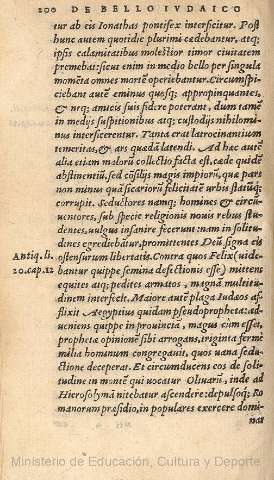 200 DE BELLO IVDAICO
tur ab eis Ionathas pontifex interficitur. Post
hunc autem quotidie plurimi cædebantur, atq;
ipsis calamitatibus molestior timor ciuitatem
premebat: sicut enim in medio bello per singula
momēta omnes mortē operiebantur. Circunspi-
ciebant autē eminus quosq; appropinquantes,
& neq; amicis suis fidere poterant, dum tamē
in medijs suspitionibus atq; custodijs nihilomi-
nus interficerentur. Tanta erat latrocinantium
temeritas, & ars quædā latendi. Ad hæc autē
alia etiam malorū collectio facta est, cæde quidē
abstinentiū, sed cōsilijs magis impiorū, quæ pars
non minus quā sicariorū felicitatē urbis statūq;
corrupit. Seductores namq; homines & circū-
uentores, sub specie religionis nouis rebus stu-
dentes, uulgus insanire fecerunt: nam in solitu-
dines egrediebātur, promittentes Deū signa eis
Antiq. li. ostensurum libertatis. Contra quos Felix (uide-
20. cap. 12 bantur quippe semina defectionis esse) mittens
equites atq; pedites armatos, magnā multitu-
dinem interfecit. Maiore autē plaga Iudæos af-
flixit Aegyptius quidam pseudopropheta: ad-
ueniens quippe in prouincia, magus cum esset,
prophetæ opinionē sibi arrogans, triginta fermē
milia hominum congregauit, quos uana sedu-
ctione deceperat. Et circumducens eos de soli-
tudine in montē qui uocatur Oliuarū, inde ad
Hierosolymā nitebatur ascendere: depulsoq; Ro
manorum præsidio, in populares exercere domi-
nat
Ministerio de Educación, Cultura y Deporte